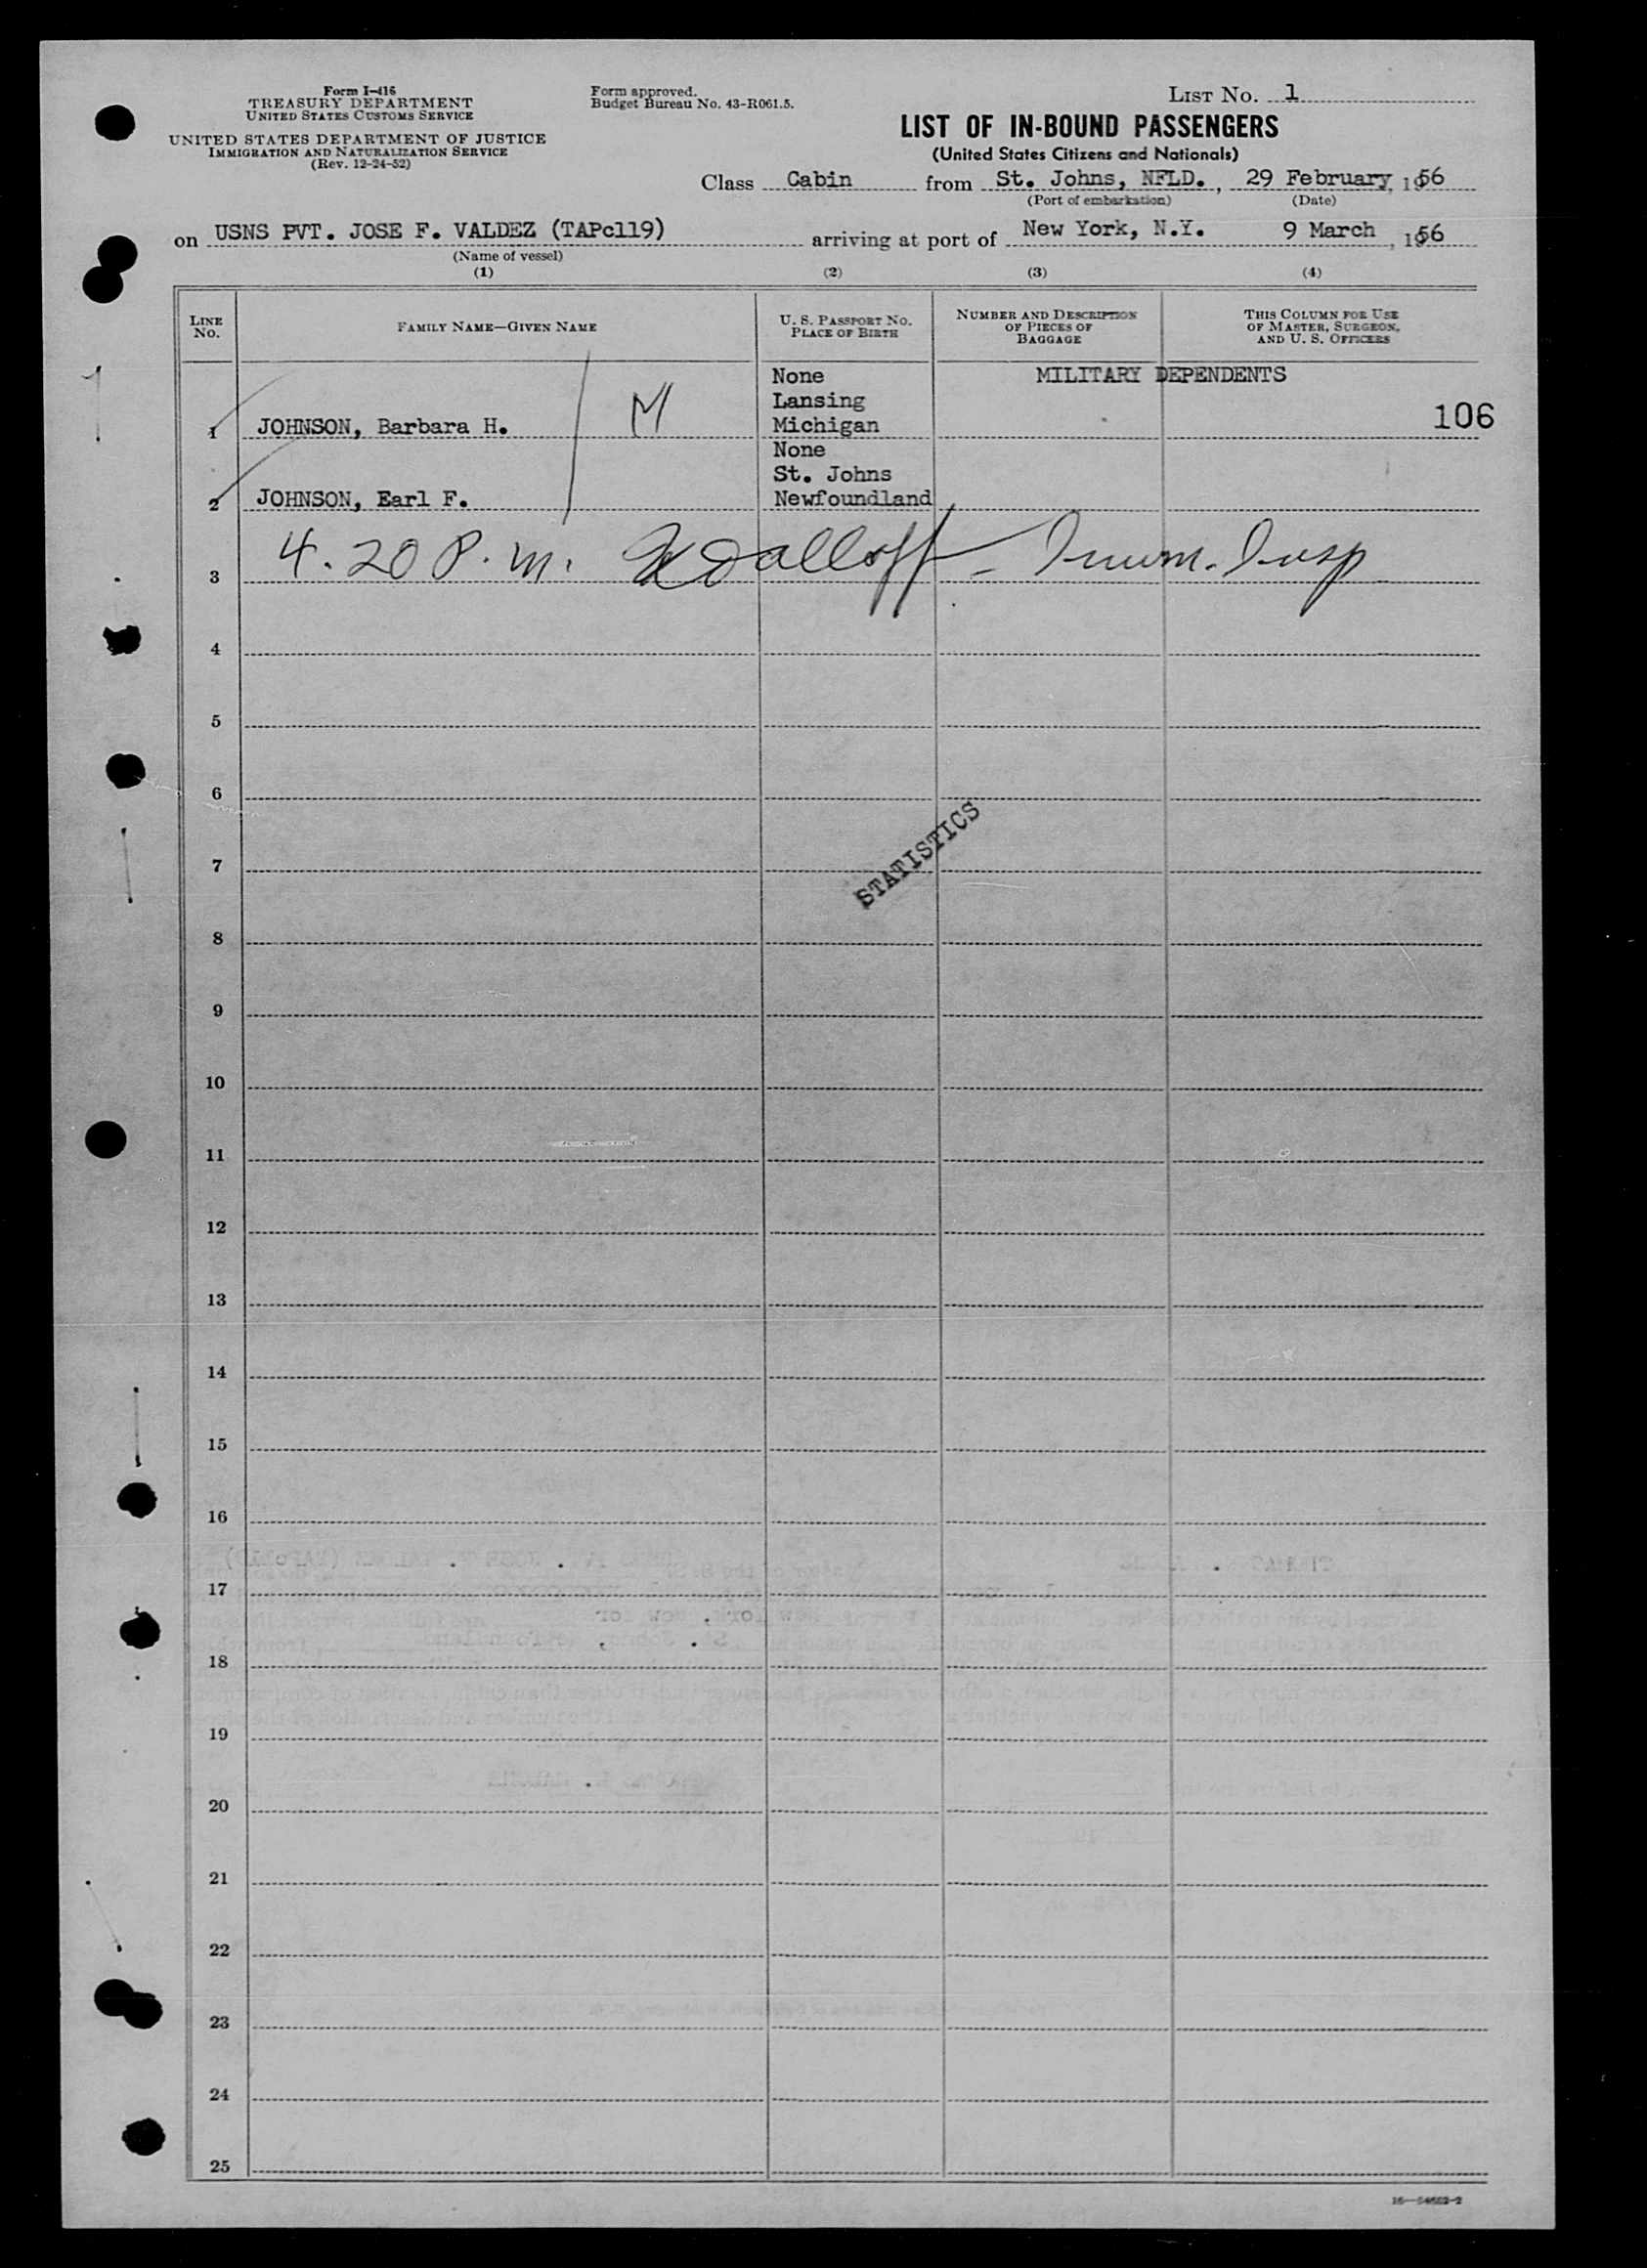 Form I-416
TREASURY DEPARTMENT
UNITED STATES CUSTOMS SERVICE
UNITED STATES DEPARTMENT OF JUSTICE
IMMIGRATION AND NATURALIZATION SERVICE
(Rev. 12-24-52)
Form approved.
Budget Bureau No. 43-R061.5.
LIST NO. 1
LIST OF IN-BOUND PASSENGERS
(United States Citizens and Nationals)
Class Cabin from St. Johns, NFLD., 29 February, 1956
(Port of embarkation) (Date)
on USNS PVT. JOSE F. VALDEZ (TAPc119) arriving at port of New York, N.Y. 9 March, 1956
(Name of vessel)
(1) (2) (3) (4)
LINE NO.
FAMILY NAME—GIVEN NAME
U. S. PASSPORT NO.
PLACE OF BIRTH
NUMBER AND DESCRIPTION
OF PIECES OF
BAGGAGE
THIS COLUMN FOR USE
OF MASTER, SURGEON,
AND U. S. OFFICERS
None MILITARY DEPENDENTS
Lansing
1 JOHNSON, Barbara H. M Michigan 106
None
St. Johns
2 JOHNSON, Earl F. Newfoundland
3 4.20 P.m. Imm. Insp
4
5
6
7
STATISTICS
8
9
10
11
12
13
14
15
16
17
18
19
20
21
22
23
24
25